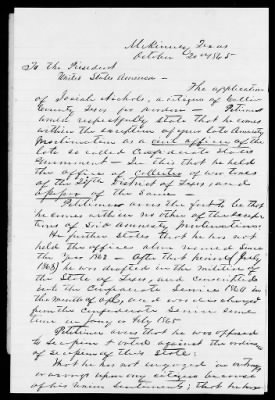 McKinney, Texas
October 20th 1865
To the President
United States America —
The application
of Josiah Nichols, a citizen of Collin
County Texas for pardon Petitioner
would respectfully state that he comes
within the exception of your late Amnesty
Proclamation as a civil officer of the
late so called Confederate States
Government — In this that he held
the office of Collector of war taxes
of the District of Texas and
of the Same —
Petitioner avers the fact to be that
he comes within no other of the exceptions
of said Amnesty Proclamation
He further states that he has not
held the offices above named Since
the year 1863 — After that period (July
1863) he was drafted in the Militia of
the State of Texas, and
into the Confederate Service 1864 in
the month of and was discharged
from the Confederate Service some
time in June or July 1865
Petitioner avers that he was opposed
to Secession & voted against the ordinance
of secession of this State;
That he has not engaged in
or warring upon any citizen because
of his union Sentiments; that he has